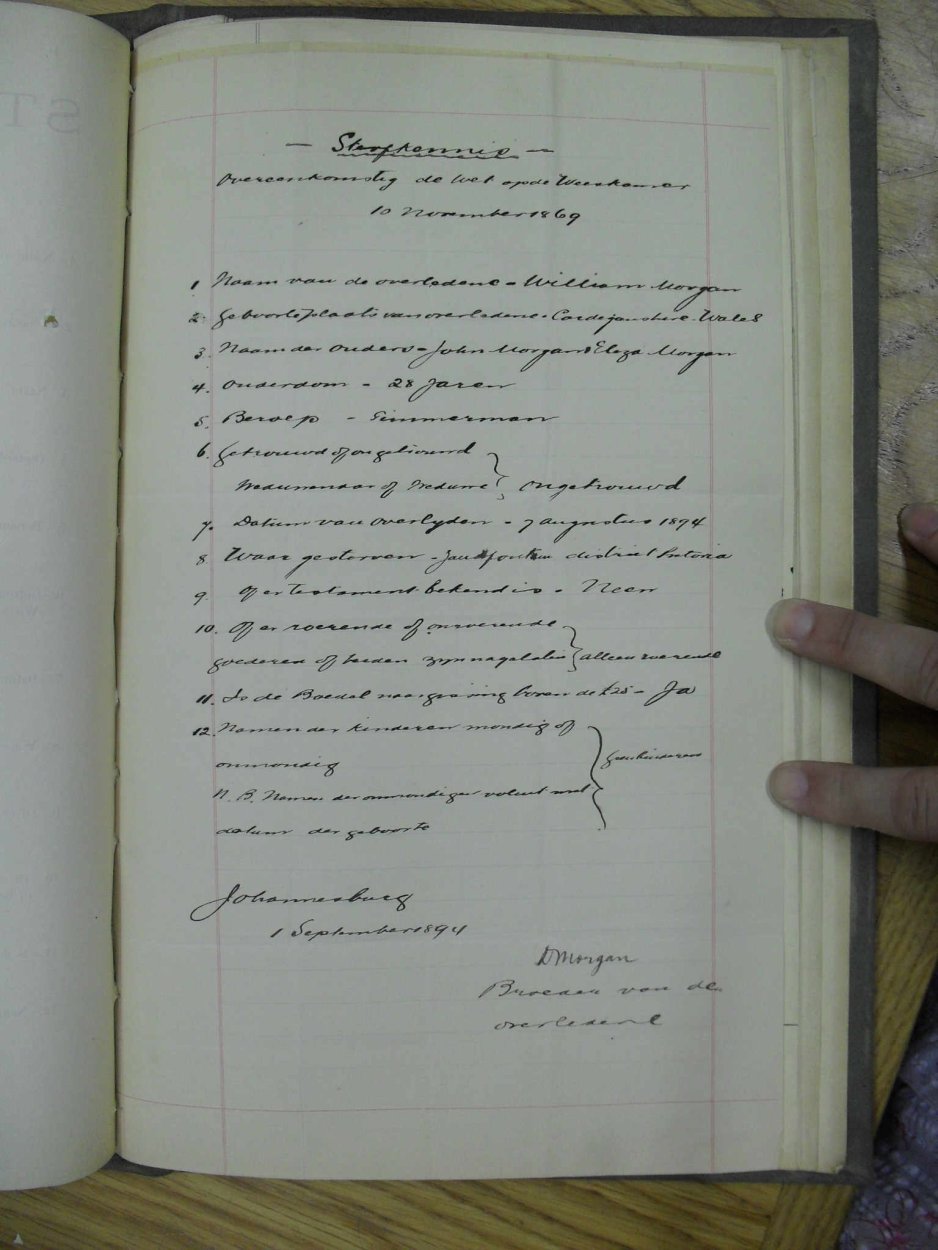 ST
— Sterfkennis —
Overeenkomstig de Wet op de Weeskamer
10 November 1869
1 Naam van de overledene - William Morgan
2. Geboorteplaats van overledene - Cardiganshire Wales
3. Naam der Ouders - John Morgan & Eliza Morgan
4. Ouderdom - 28 Jaren
5. Beroep - Timmerman
6. Getrouwd of ongetrouwd
Weduwenaar of Weduwe } Ongetrouwd
7. Datum van Overlyden - 7 Augustus 1894
8. Waar gestorven - district Pretoria
9. Of er testament bekend is - Neen
10. Of er roerende of onroerende
goederen of beiden zyn nagelaten } alleen roerende
11. Is de Boedel naar gissing boven de £25 - Ja
12. Namen der kinderen mondig of
onmondig } Geen kinderen
N.B. Namen der onmondigen voluit met
datum der geboorte
Johannesburg
1 September 1894
D Morgan
Broeder van de
overledene